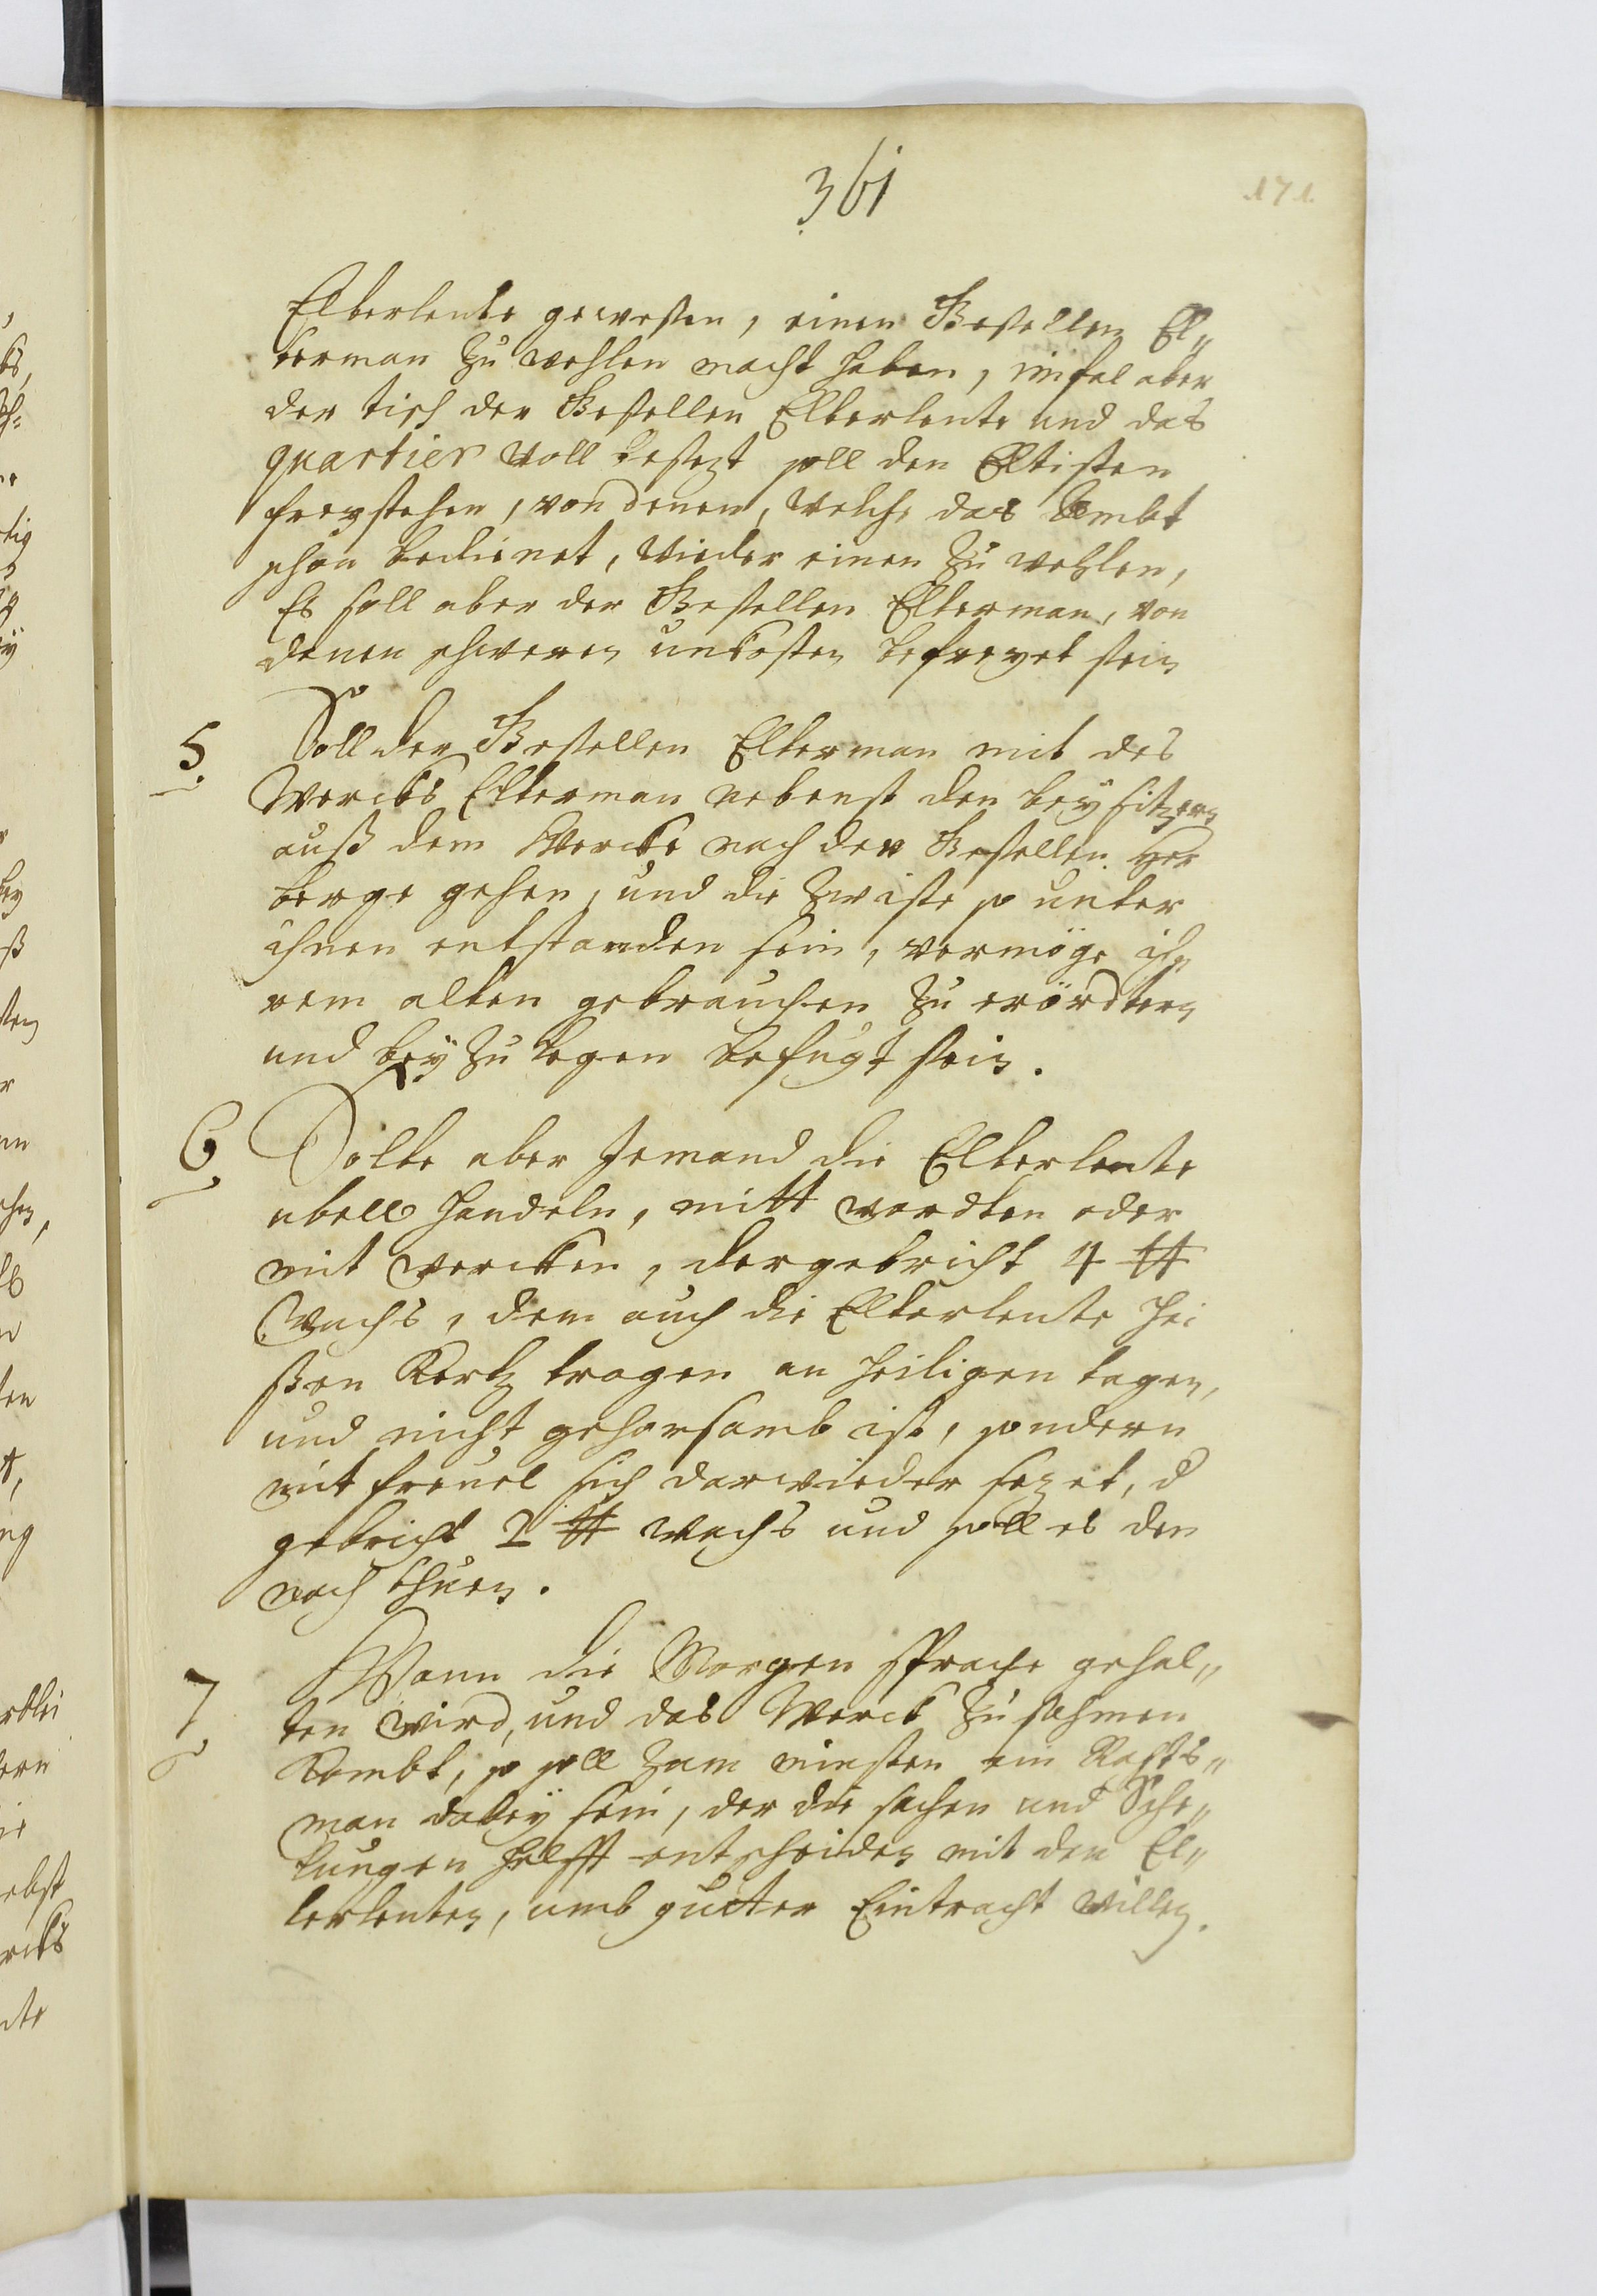 361
171.
Elterleute gewesen, einen Gesellen El„
terman zu wehlen macht haben, imfal aber
der tisch der Gesellen Elterleute und das
quartier voll besezt soll den Eltisten
freystehen, von denen, welche das Ambt
schon bedienet, wieder einen zu wehlen,
Es soll aber der Gesellen Elterman, von
denen schweren unkosten befreyet sein
5. Soll der Gesellen Elterman mit des
Wercks Elterman nebenst den beysitzern
auß dem Wercke nach der Gesellen Her
berge gehen, und die Zwiste so unter
ihnen entstanden sein, vermöge ih„
rem alten gebrauchen zu erördtern
und beyzulegen befugt sein.
6. Solte aber Jemand die Elterleute
ubell handeln, mitt wordten oder
mit wercken, der gebricht 4 ℔
Wachs, dem auch die Elterleute hei
ßen Kertz tragen an heiligen tagen,
und nicht gehorsamb ist, sondern
mit freuel sich darwieder sezet, d
gebricht 2 ℔ wachs und soll es den
noch thuen.
7. Wann die Morgen sprache gehal„
ten wird, und das Werck zusahmen
Kombt, so soll zum minsten ein Rahts„
man dabey sein, der die sachen und Sche„
lungen helfft entscheiden mit den El„
terleuten, umb gutter Eintracht willen.